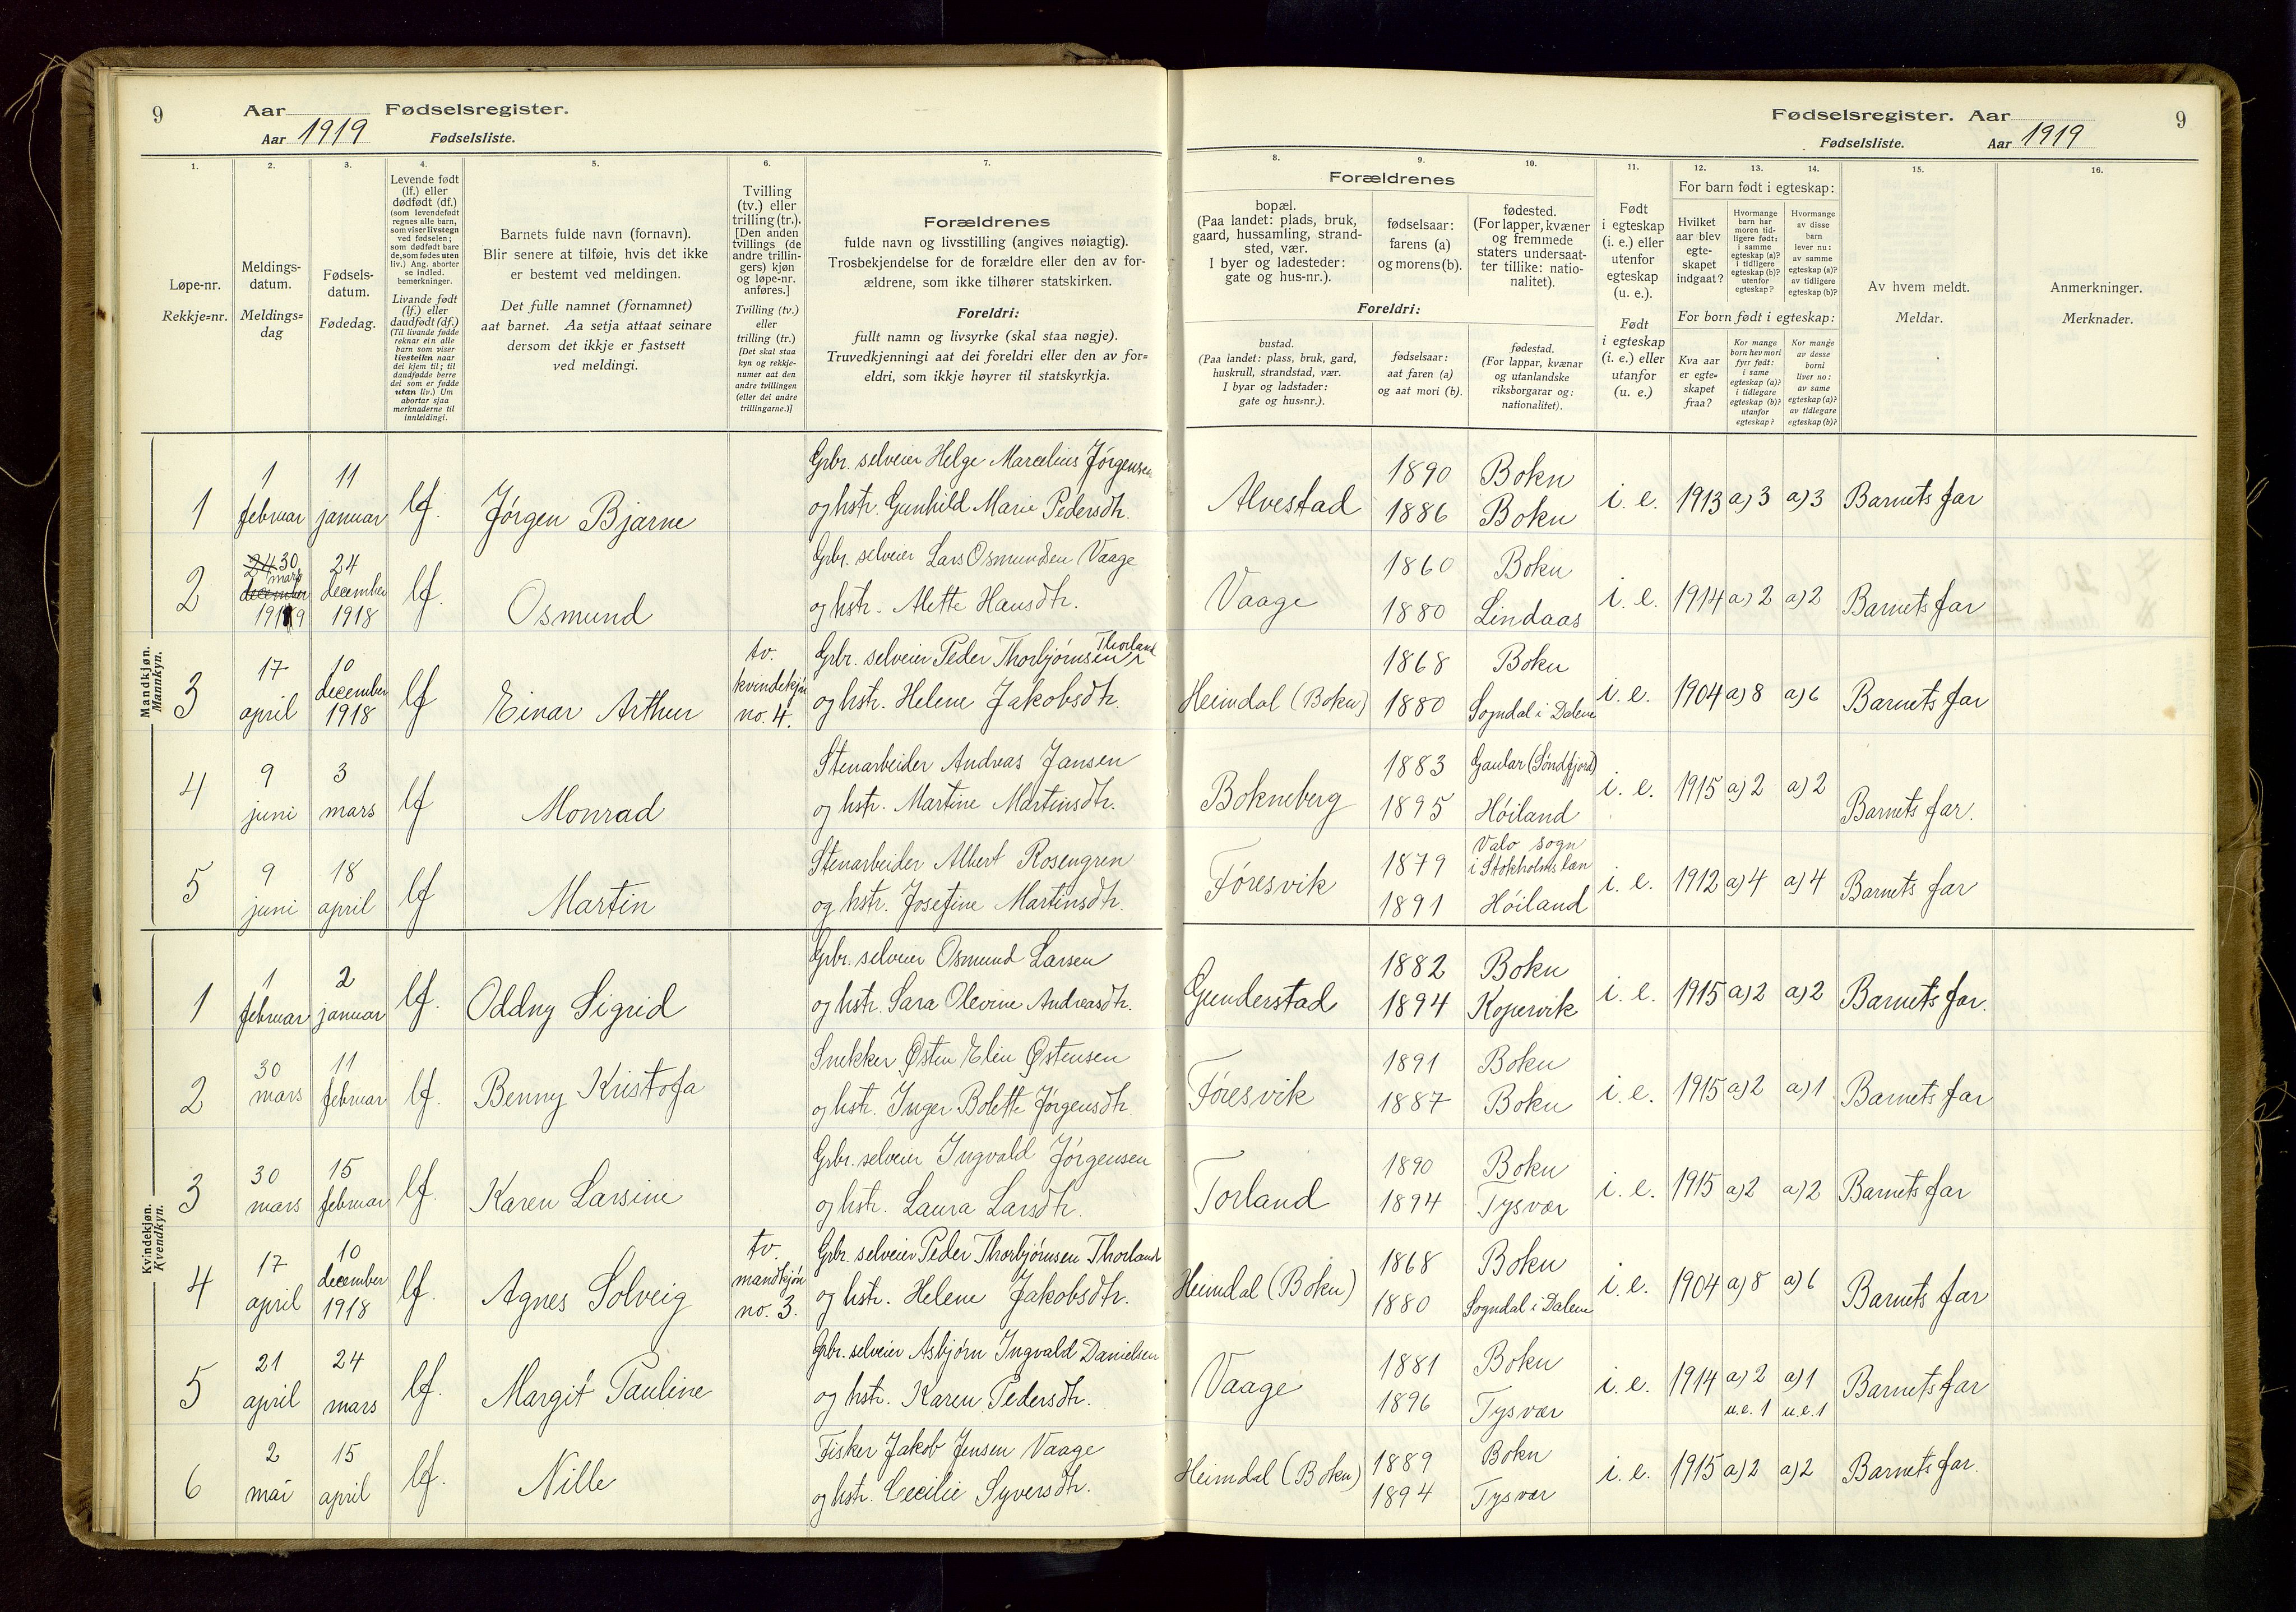 9 Aar Fødselsregister.
Aar 1919 Fødselsliste.
1. 2. 3. 4. 5. 6. 7.
Løpe-nr.
Rekkje=nr.
Meldings-
datum.
Meldings=
dag
Fødsels-
datum.
Fødedag.
Levende født
(lf.) eller
dødfødt (df.)
(som levendefødt
regnes alle barn,
som viser livstegn
ved fødselen;
som dødfødt bare
de, som fødes uten
liv.) Ang. aborter
se indled.
bemerkninger.
Livande født
(lf.) eller
daudfødt (df.)
(Til livande fødde
reknar ein alle
barn som viser
livsteikn naar
dei kjem til; til
daudfødde berre
dei som er fødde
utan liv.) Um
abortar sjaa
merknaderne til
innleidingi.
Barnets fulde navn (fornavn).
Blir senere at tilføie, hvis det ikke
er bestemt ved meldingen.
Det fulle namnet (fornamnet)
aat barnet. Aa setja attaat seinare
dersom det ikkje er fastsett
ved meldingi.
Tvilling
(tv.) eller
trilling (tr.).
[Den anden
tvillings (de
andre trillin-
gers) kjøn
og løpe-nr.
anføres.]
Tvilling (tv.)
eller
trilling (tr.)
[Det skal staa
kyn og rekkje-
numer aat den
andre tvillingen
(eller dei andre
trillingarne.)]
Forældrenes
fulde navn og livsstilling (angives nøiagtig).
Trosbekjendelse for de forældre eller den av for-
ældrene, som ikke tilhører statskirken.
Foreldri:
fullt namn og livsyrke (skal staa nøgje).
Truvedkjenningi aat dei foreldri eller den av for=
eldri, som ikkje høyrer til statskyrkja.
Mandkjøn.
Mannkyn.
1
1
februar
11
januar
lf.
Jørgen Bjarne
Grbr. selveier Helge Marcelius Jørgensen
og hstr. Gunhild Marie Pedersdtr.
2
24 30
mars
december
1919
24
december
1918
lf.
Osmund
Grbr. selveier Lars Osmundsen Vaage
og hstr. Alette Hansdtr.
3
17
april
10
december
1918
lf
Einar Arthur
tv.
kvindekjøn
no. 4.
Grbr. selveier Peder Thorbjørnsen Thorland
og hstr. Helene Jakobsdtr.
4
9
juni
3
mars
lf
Monrad
Stenarbeider Andreas Jansen
og hstr. Martine Martinsdtr.
5
9
juni
18
april
lf
Martin
Stenarbeider Albert Rosengren
og hstr. Josefine Martinsdtr.
Kvindekjøn.
Kvendkyn.
1
1
februar
2
januar
lf.
Oddny Sigrid
Grbr. selveier Osmund Larsen
og hstr. Sara Olevine Andreasdtr.
2
30
mars
11
februar
lf.
Benny Kristofa
Snekker Østen Elin Østensen
og hstr. Inger Bolette Jørgensdtr.
3
30
mars
15
februar
lf.
Karen Larsine
Grbr. selveier Ingvald Jørgensen
og hstr. Laura Larsdtr.
4
17
april
10
december
1918
lf.
Agnes Solveig
tv.
mandkjøn
no. 3.
Grbr. selveier Peder Thorbjørnsen Thorland
og hstr. Helene Jakobsdtr.
5
21
april
24
mars
lf.
Margit Pauline
Grbr. selveier Asbjørn Ingvald Danielsen
og hstr. Karen Pedersdtr.
6
2
mai
15
april
lf.
Nille
Fisker Jakob Jensen Vaage
og hstr. Cecilie Syversdtr.
Fødselsregister. Aar 9
Fødselsliste. Aar 1919
8. 9. 10. 11. 12. 13. 14. 15. 16.
Forældrenes
bopæl.
(Paa landet: plads, bruk,
gaard, hussamling, strand-
sted, vær.
I byer og ladesteder:
gate og hus-nr.).
fødselsaar:
farens (a)
og morens (b).
fødested.
(For lapper, kvæner
og fremmede
staters undersaat-
ter tillike: natio-
nalitet).
Foreldri:
bustad.
(Paa landet: plass, bruk, gard,
huskrull, strandstad, vær.
I byar og ladstader:
gate og hus=nr.).
fødselsaar:
aat faren (a)
og aat mori (b).
fødestad.
(For lappar, kvænar
og utanlandske
riksborgarar og:
nationalitet).
Født
i egteskap
(i. e.) eller
utenfor
egteskap
(u. e.).
Født
i egteskap
(i. e.) eller
utanfor
(u. e.)
For barn født i egteskap:
Hvilket
aar blev
egte-
skapet
indgaat?
Hvormange
barn har
moren tid-
ligere født:
i samme
egteskap (a)?
i tidligere
egteskap (b)?
utenfor
egteskap?
Hvormange
av disse
barn
lever nu:
av samme
egteskap (a)?
av tidligere
egteskap (b)?
For born født i egteskap:
Kva aar
er egte=
skapet
fraa?
Kor mange
born hev mori
fyrr født:
i same
egteskap (a)?
i tidlegare
egteskap (b)?
utanfor
egteskap?
Kor mange
av desse
borni
liver no:
av same
egteskap (a)?
av tidlegare
egteskap (b)?
Av hvem meldt.
Meldar.
Anmerkninger.
Merknader.
Alvestad
1890 Bokn
1886 Bokn
i. e. 1913 a) 3 a) 3 Barnets far
Vaage
1860 Bokn
1880 Lindaas
i. e. 1914 a) 2 a) 2 Barnets far
Heimdal (Bokn)
1868 Bokn
1880 Sogndal i Dalene
i. e. 1904 a) 8 a) 6 Barnets far
Bokneberg
1883 Gaular (Søndfjord)
1895 Høiland
i. e. 1915 a) 2 a) 2 Barnets far.
Føresvik
1879 Valo sogn
i Stokholms læn
1891 Høiland
i. e. 1912 a) 4 a) 4 Barnets far
Gunderstad
1882 Bokn
1894 Kopervik
i. e. 1915 a) 2 a) 2 Barnets far.
Føresvik
1891 Bokn
1887 Bokn
i. e. 1915 a) 2 a) 1 Barnets far
Torland
1890 Bokn
1894 Tysvær
i. e. 1915 a) 2 a) 2 Barnets far
Heimdal (Bokn)
1868 Bokn
1880 Sogndal i Dalene
i. e. 1904 a) 8 a) 6 Barnets far
Vaage
1881 Bokn
1896 Tysvær
i. e. 1914 a) 2 a) 1 Barnets far
u. e. 1 u. e. 1
Heimdal (Bokn)
1889 Bokn
1894 Tysvær
i. e. 1915 a) 2 a) 2 Barnets far.